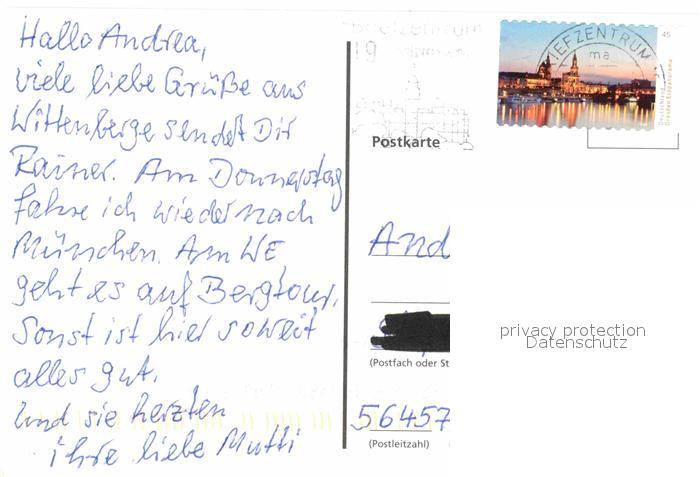 Hallo Andrea,
viele liebe Grüße aus
Wittenberge sendet Dir
Rainer. Am Donnerstag
fahre ich wieder nach
München. Am WE
geht es auf Bergtour.
Sonst ist hier soweit
alles gut.
Und sie herzten
ihre liebe Mutti
Briefzentrum
19
BRIEFZENTRUM
ma
45
Deutschland
Dresden Elbpanorama
Postkarte
And
(Postfach oder St
56457
(Postleitzahl)
privacy protection
Datenschutz